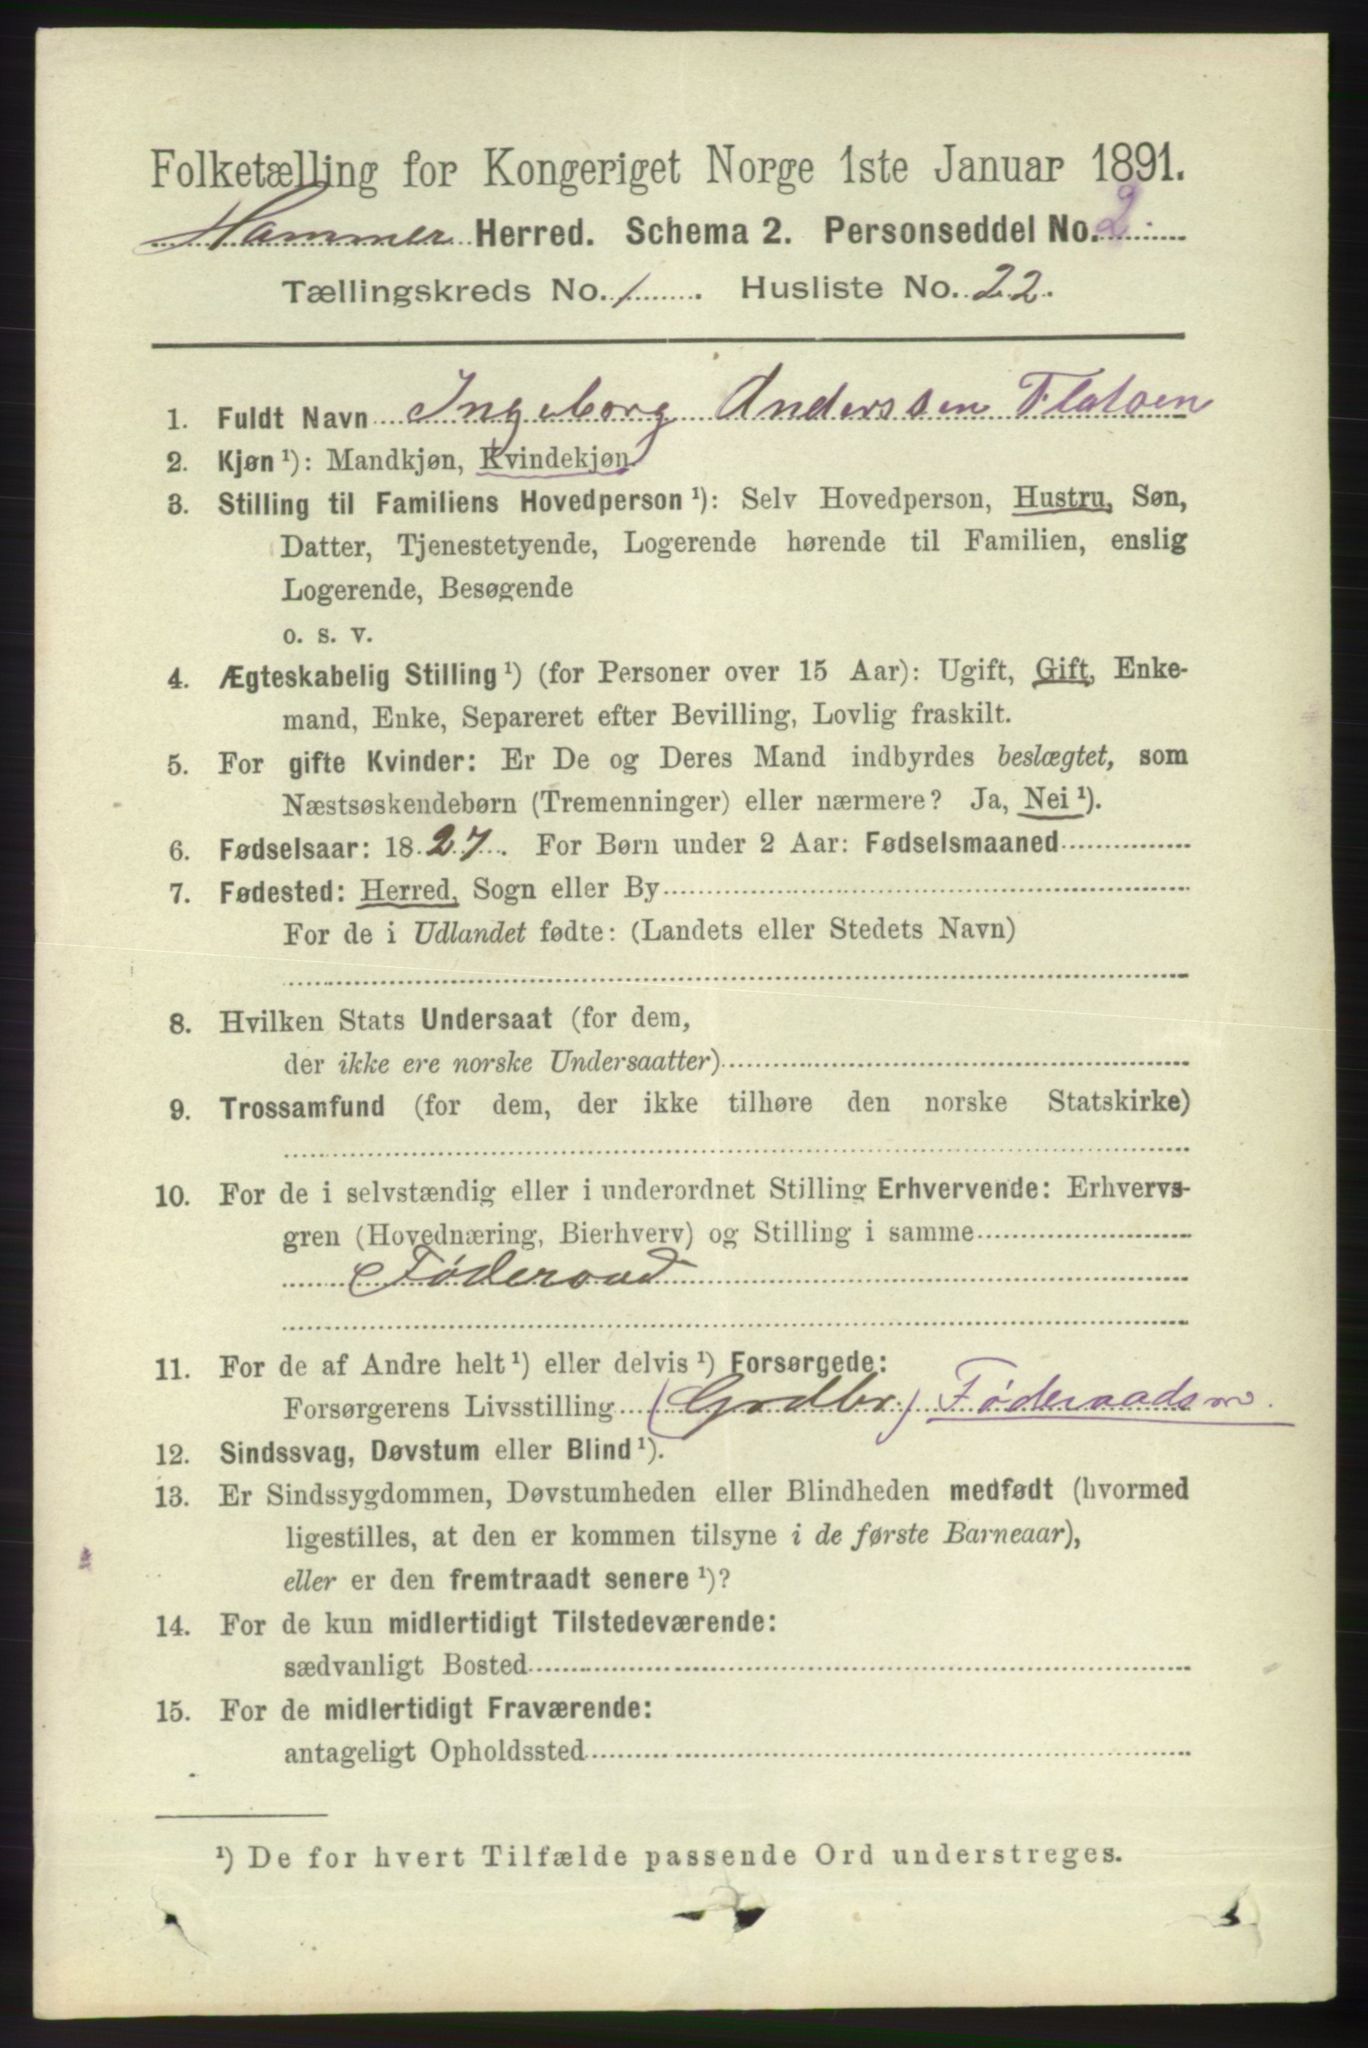 Folketælling for Kongeriget Norge 1ste Januar 1891.
Hammer Herred. Schema 2. Personseddel No. 2.
Tællingskreds No. 1. Husliste No. 22.
1. Fuldt Navn Ingeborg Anderssen Flatøen
2. Kjøn ¹): Mandkjøn, Kvindekjøn.
3. Stilling til Familiens Hovedperson ¹): Selv Hovedperson, Hustru, Søn,
Datter, Tjenestetyende, Logerende hørende til Familien, enslig
Logerende, Besøgende
o. s. v.
4. Ægteskabelig Stilling ¹) (for Personer over 15 Aar): Ugift, Gift, Enke-
mand, Enke, Separeret efter Bevilling, Lovlig fraskilt.
5. For gifte Kvinder: Er De og Deres Mand indbyrdes beslægtet, som
Næstsøskendebørn (Tremenninger) eller nærmere? Ja, Nei ¹).
6. Fødselsaar: 1827. For Børn under 2 Aar: Fødselsmaaned
7. Fødested: Herred, Sogn eller By
For de i Udlandet fødte: (Landets eller Stedets Navn)
8. Hvilken Stats Undersaat (for dem,
der ikke ere norske Undersaatter)
9. Trossamfund (for dem, der ikke tilhøre den norske Statskirke)
10. For de i selvstændig eller i underordnet Stilling Erhvervende: Erhvervs-
gren (Hovednæring, Bierhverv) og Stilling i samme
Føderaad
11. For de af Andre helt ¹) eller delvis ¹) Forsørgede:
Forsørgerens Livsstilling (Grdbr.) Føderaadsm.
12. Sindssvag, Døvstum eller Blind ¹).
13. Er Sindssygdommen, Døvstumheden eller Blindheden medfødt (hvormed
ligestilles, at den er kommen tilsyne i de første Barneaar),
eller er den fremtraadt senere ¹)?
14. For de kun midlertidigt Tilstedeværende:
sædvanligt Bosted
15. For de midlertidigt Fraværende:
antageligt Opholdssted
¹) De for hvert Tilfælde passende Ord understreges.